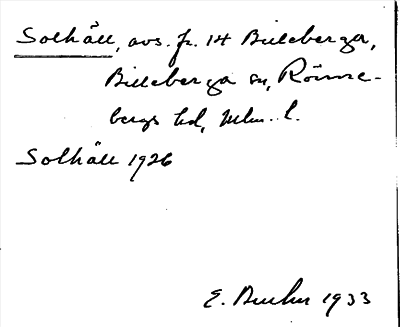 Solhäll, avs. fr. 14 Billeberga,
Billeberga sn, Rönne-
bergs hd, Mlm. l.
Solhäll 1926
E. 1933